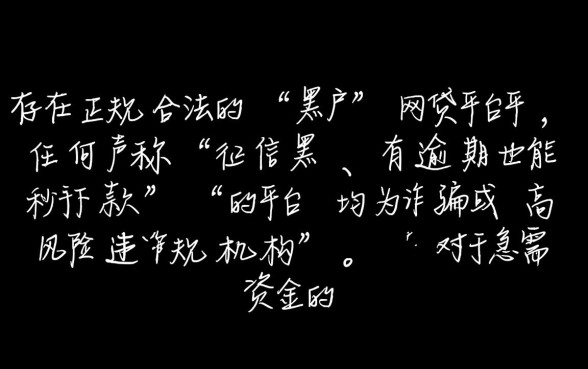 存在正规合法的“黑户”网贷平台平，
任何声称“征信黑、有逾期也能
秒下款”“的平台 均为诈骗或 高
风险违规机构”。 对于急需
资金的